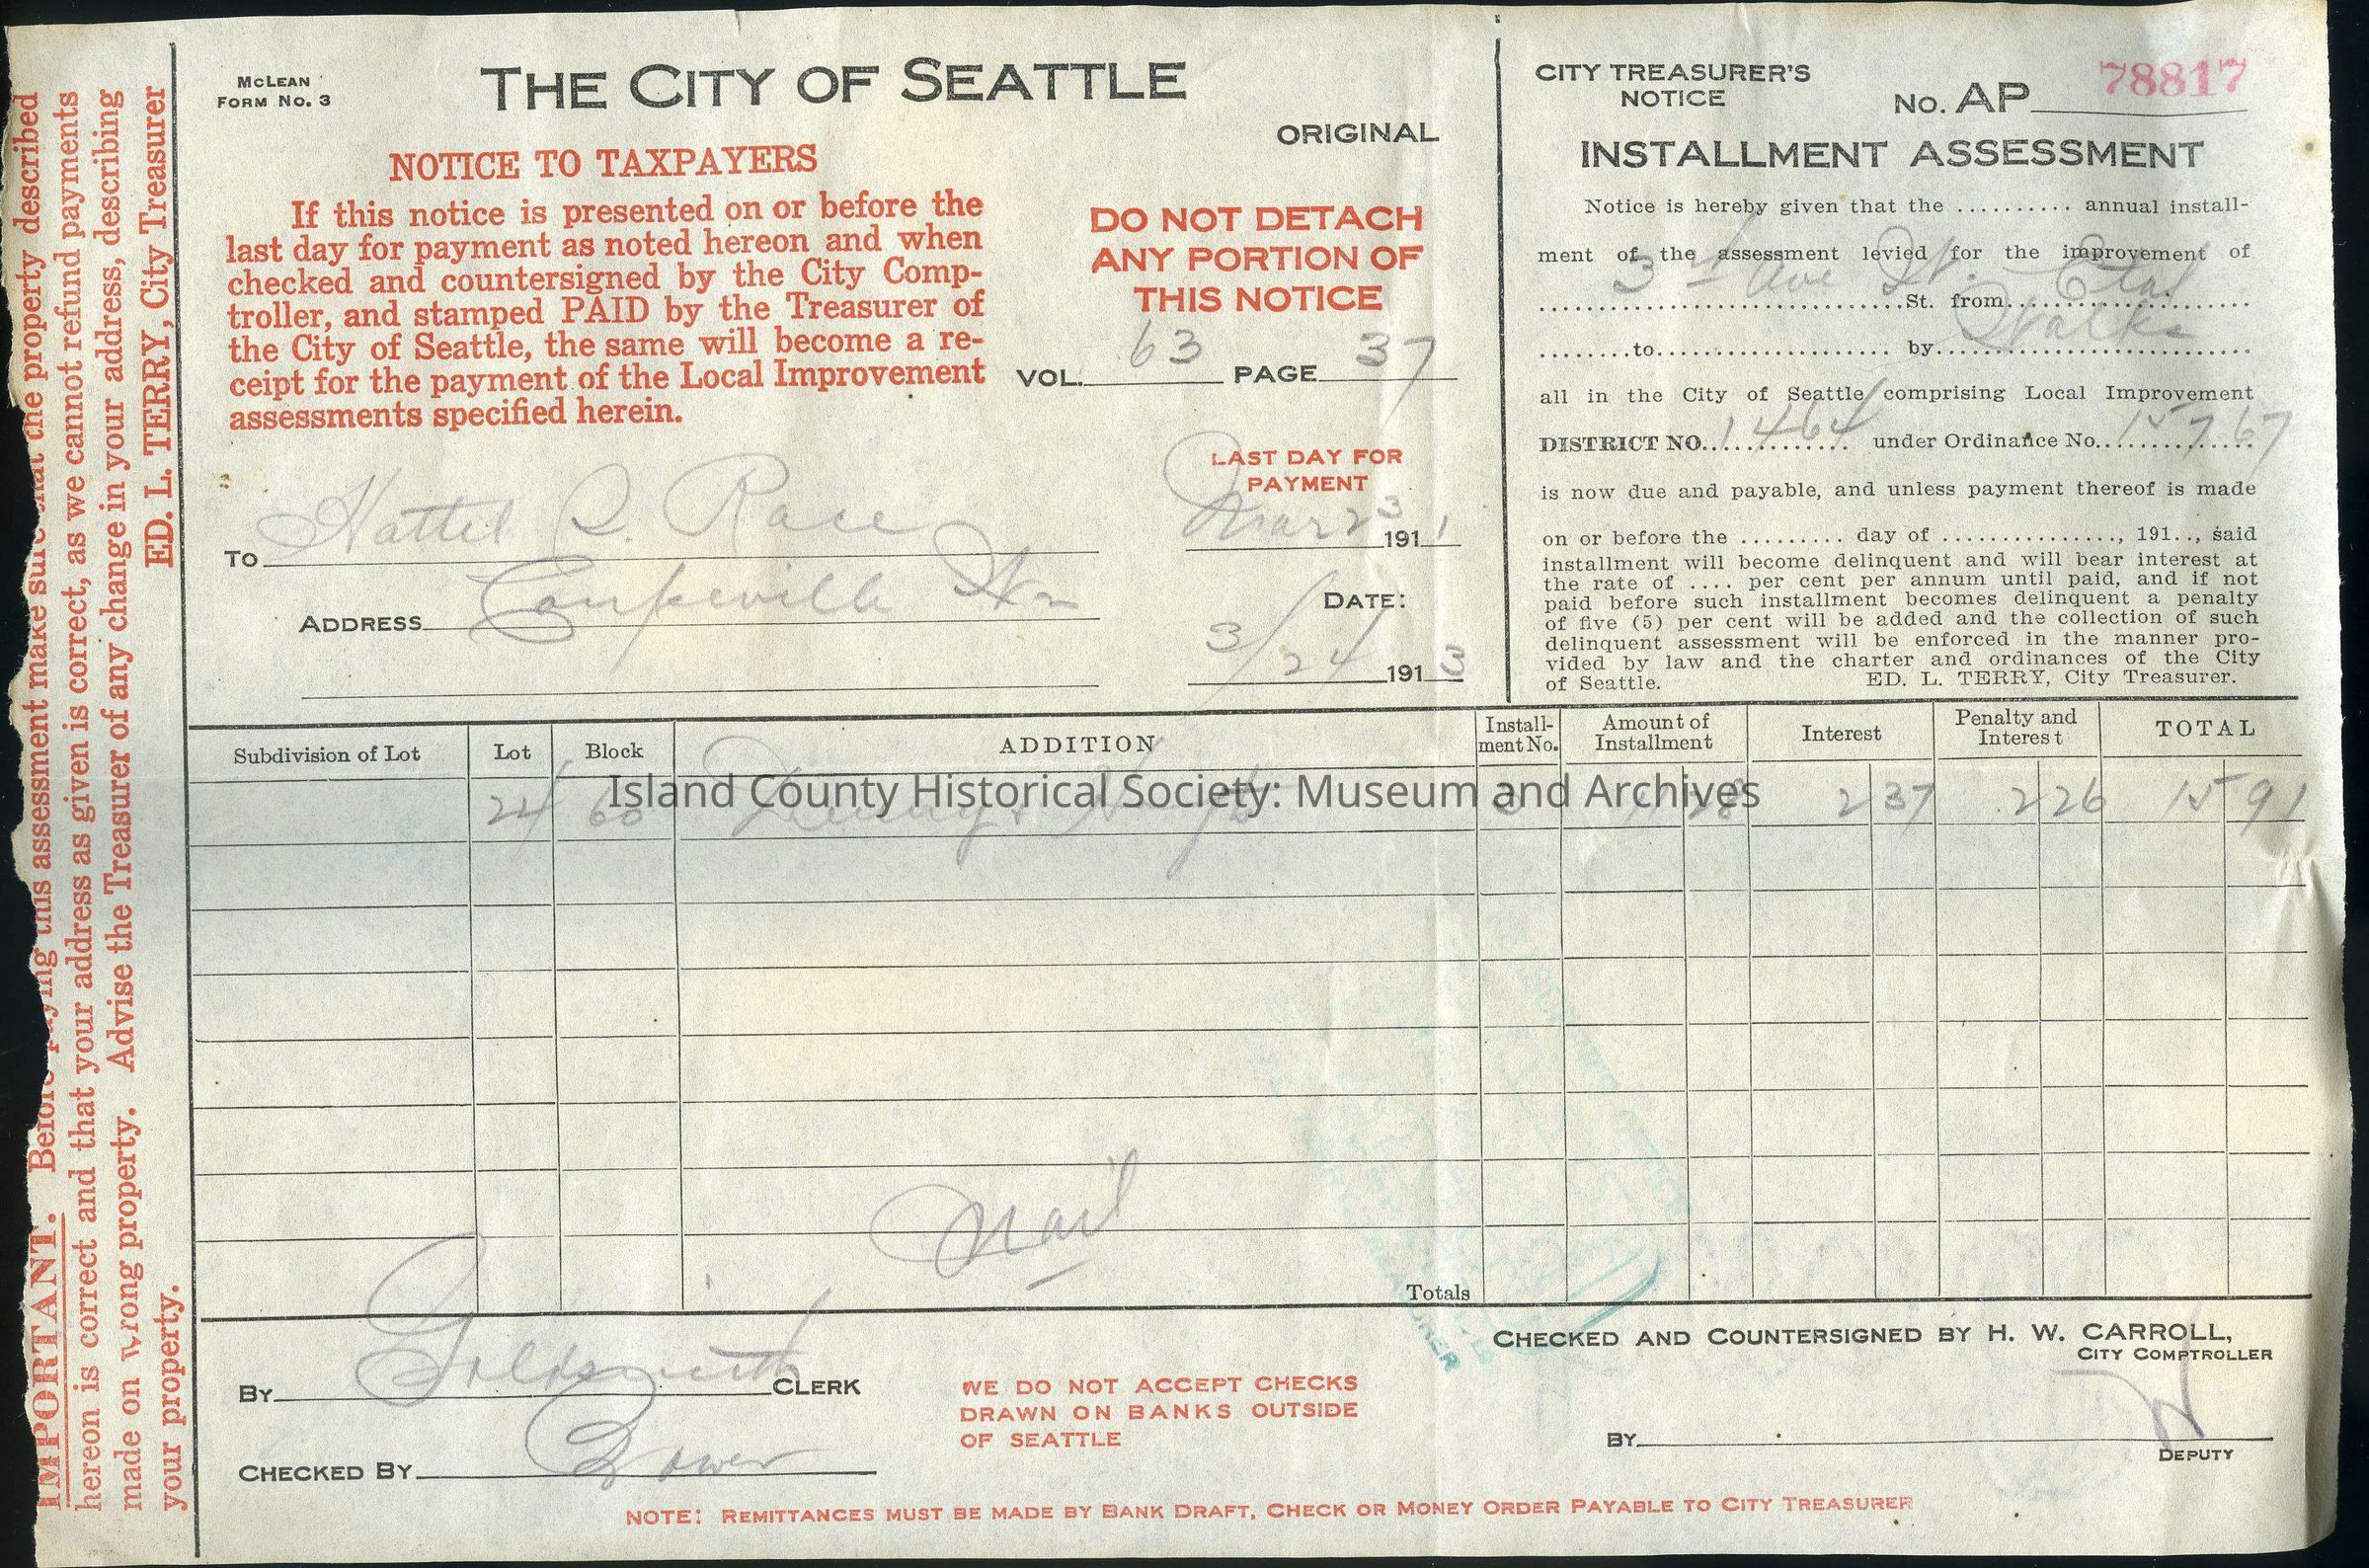 McLEAN
FORM NO. 3
THE CITY OF SEATTLE
ORIGINAL
NOTICE TO TAXPAYERS
If this notice is presented on or before the
last day for payment as noted hereon and when
checked and countersigned by the City Comp-
troller, and stamped PAID by the Treasurer of
the City of Seattle, the same will become a re-
ceipt for the payment of the Local Improvement
assessments specified herein.
DO NOT DETACH
ANY PORTION OF
THIS NOTICE
VOL. 63 PAGE 37
LAST DAY FOR
PAYMENT
Mar 23 191 1
TO Hattie S. Race
ADDRESS Coupeville Wn
DATE:
3/24 191 3
CITY TREASURER'S
NOTICE
NO. AP 78817
INSTALLMENT ASSESSMENT
Notice is hereby given that the .......... annual install-
ment of the assessment levied for the improvement of
3rd Ave W. Etal St. from
to by Walks
all in the City of Seattle comprising Local Improvement
DISTRICT NO. 1464 under Ordinance No. 15767
is now due and payable, and unless payment thereof is made
on or before the ......... day of ..............., 191.., said
installment will become delinquent and will bear interest at
the rate of .... per cent per annum until paid, and if not
paid before such installment becomes delinquent a penalty
of five (5) per cent will be added and the collection of such
delinquent assessment will be enforced in the manner pro-
vided by law and the charter and ordinances of the City
of Seattle. ED. L. TERRY, City Treasurer.
Subdivision of Lot Lot Block ADDITION Install-ment No. Amount of Installment Interest Penalty and Interest TOTAL
24 60 Denny & Hoyt 2 11 28 2 37 2 26 15 91
Island County Historical Society: Museum and Archives
Mail
Totals
BY Goldsmith CLERK
CHECKED BY Bower
WE DO NOT ACCEPT CHECKS
DRAWN ON BANKS OUTSIDE
OF SEATTLE
CHECKED AND COUNTERSIGNED BY H. W. CARROLL,
CITY COMPTROLLER
BY
DEPUTY
NOTE: REMITTANCES MUST BE MADE BY BANK DRAFT, CHECK OR MONEY ORDER PAYABLE TO CITY TREASURER
IMPORTANT. Before paying this assessment make sure that the property described
hereon is correct and that your address as given is correct, as we cannot refund payments
made on wrong property. Advise the Treasurer of any change in your address, describing
your property. ED. L. TERRY, City Treasurer